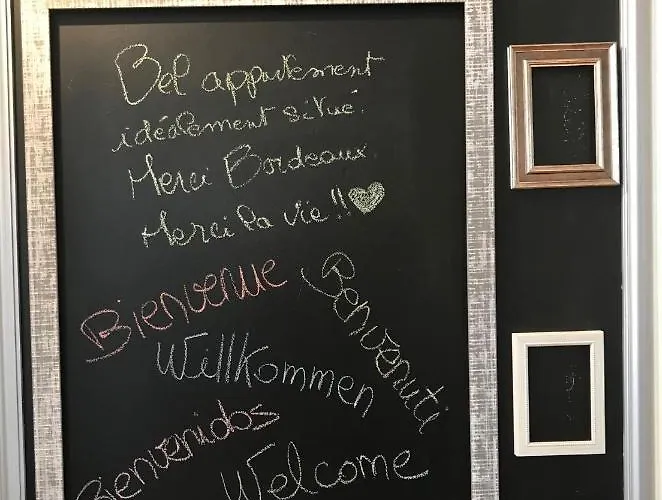 Bel appartement
idéalement situé.
Merci Bordeaux.
Merci la vie !!
Bienvenue
Benvenuti
Willkommen
Bienvenidos
Welcome